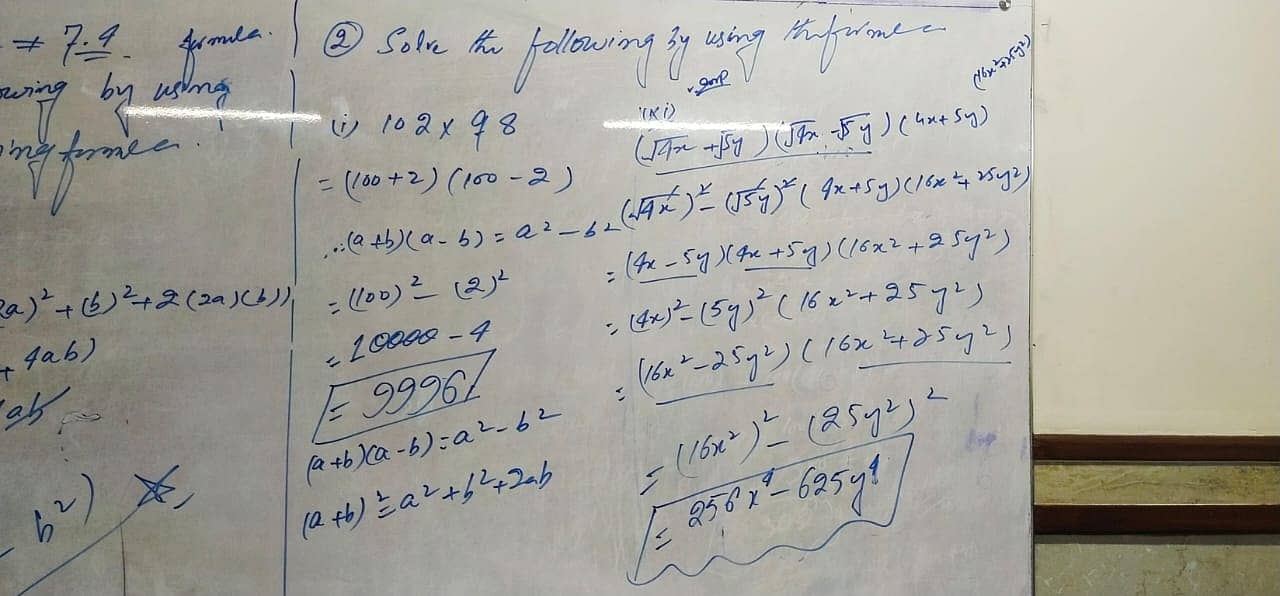 = 7.4. formula.
owing by using
ing formula.
2a)² + (b)² + 2(2a)(b))
+ 4ab)
ab
b²)
② Solve the following by using the formula
(i) 102 x 98
= (100+2) (100-2)
∴ (a+b)(a-b) = a²-b²
= (100)² - (2)²
= 10000 - 4
= 9996
(a+b)(a-b) = a²-b²
(a+b)² = a²+b²+2ab
(xi)
(16x²+25y²)
(√4x + √5y) (√4x - √5y) (4x+5y)
(√4x)² - (√5y)² (4x+5y)(16x²+25y²)
= (4x-5y)(4x+5y)(16x²+25y²)
= (4x)² - (5y)² (16x²+25y²)
= (16x²-25y²) (16x²+25y²)
= (16x²)² - (25y²)²
= 256x⁴ - 625y⁴